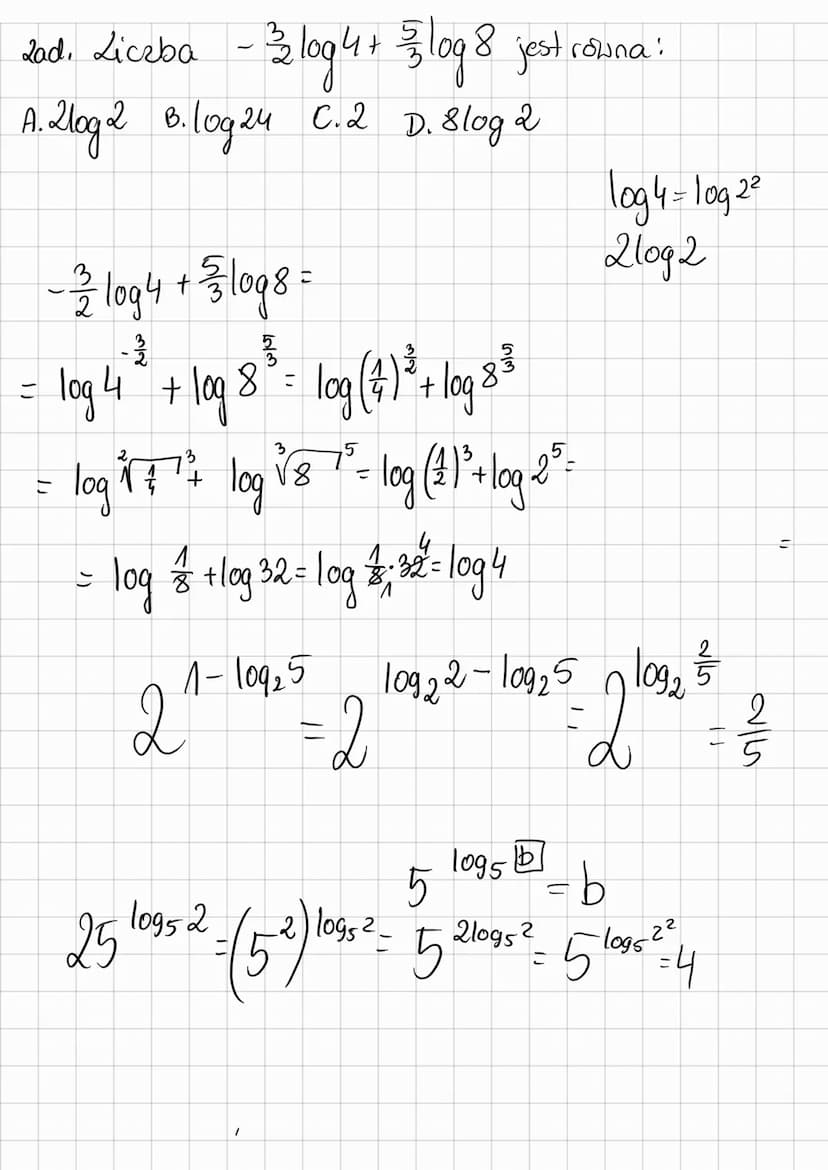 Zad. Liczba -3/2 log4 + 5/3 log 8 jest równa:
A. 2log2 B. log24 C. 2 D. 8log2
log4 = log2²
2log2
-3/2 log4 + 5/3 log8 =
= log4^(-3/2) + log8^(5/3) = log(1/4)^(3/2) + log8^(5/3)
= log ²√(1/4)^3 + log ³√8^5 = log(1/2)³ + log2⁵ =
= log 1/8 + log32 = log 1/8 · 32 = log4
4
1
=
2^(1-log₂5) = 2^(log₂2 - log₂5) = 2^(log₂ 2/5) = 2/5
5^(log₅ b) = b
25^(log₅2) = (5²)^(log₅2) = 5^(2log₅2) = 5^(log₅2²) = 4